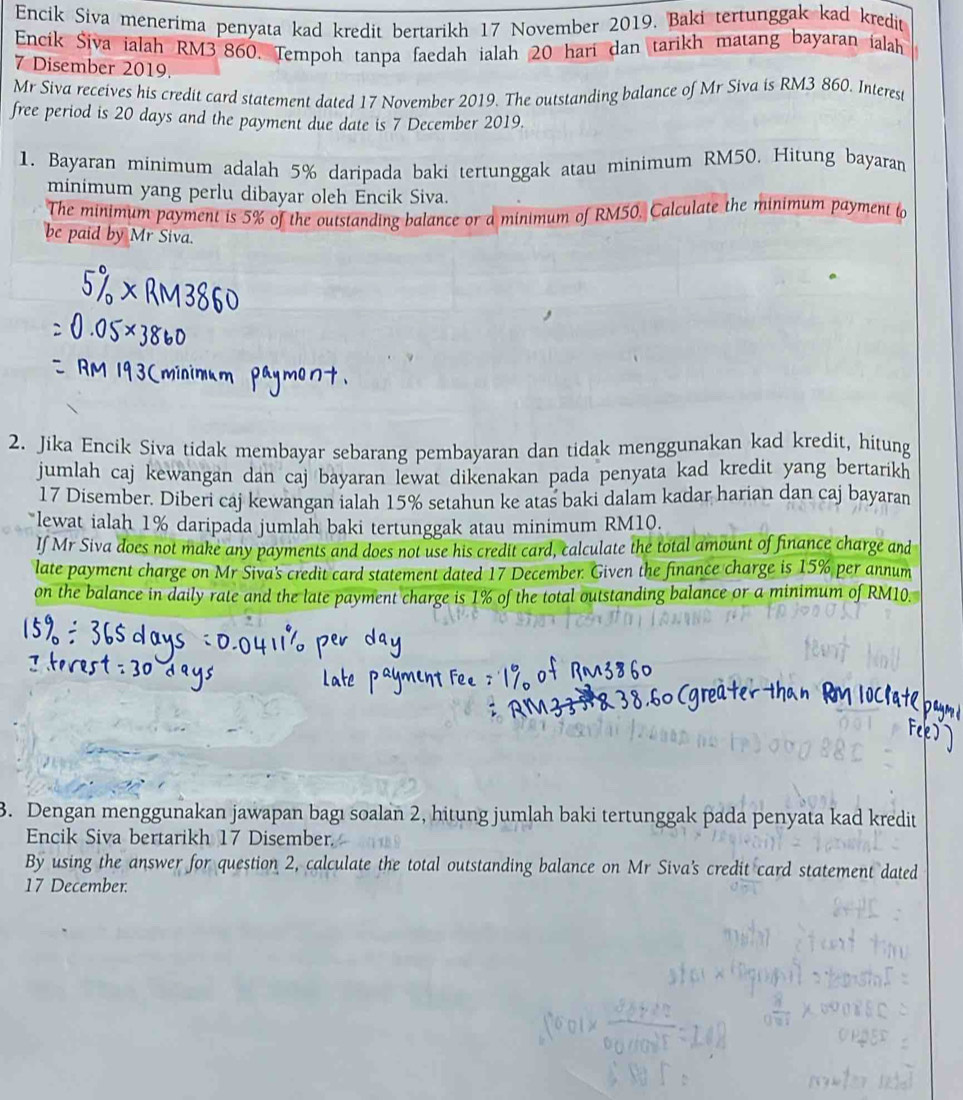 Encik Siva menerima penyata kad kredit bertarikh 17 November 2019. Baki tertunggak kad kredit
Encik Siva ialah RM3 860. Tempoh tanpa faedah ialah 20 hari dan tarikh matang bayaran ialah
7 Disember 2019.
Mr Siva receives his credit card statement dated 17 November 2019. The outstanding balance of Mr Siva is RM3 860. Interest
free period is 20 days and the payment due date is 7 December 2019.
1. Bayaran minimum adalah 5% daripada baki tertunggak atau minimum RM50. Hitung bayaran
minimum yang perlu dibayar oleh Encik Siva.
The minimum payment is 5% of the outstanding balance or a minimum of RM50. Calculate the minimum payment to
be paid by Mr Siva.
5% × RM3860
= 0.05×3860
= RM 193(minimum paymont.
2. Jika Encik Siva tidak membayar sebarang pembayaran dan tidak menggunakan kad kredit, hitung
jumlah caj kewangan dan caj bayaran lewat dikenakan pada penyata kad kredit yang bertarikh
17 Disember. Diberi caj kewangan ialah 15% setahun ke atas baki dalam kadar harian dan caj bayaran
lewat ialah 1% daripada jumlah baki tertunggak atau minimum RM10.
If Mr Siva does not make any payments and does not use his credit card, calculate the total amount of finance charge and
late payment charge on Mr Siva's credit card statement dated 17 December. Given the finance charge is 15% per annum
on the balance in daily rate and the late payment charge is 1% of the total outstanding balance or a minimum of RM10.
15% ÷ 365 days = 0.0411% per day
30 days
Late payment Fee = 1% of RM3860
38.60 (greater than RM 10(late payment
Fee))
3. Dengan menggunakan jawapan bagi soalan 2, hitung jumlah baki tertunggak pada penyata kad kredit
Encik Siva bertarikh 17 Disember.
By using the answer for question 2, calculate the total outstanding balance on Mr Siva's credit card statement dated
17 December.